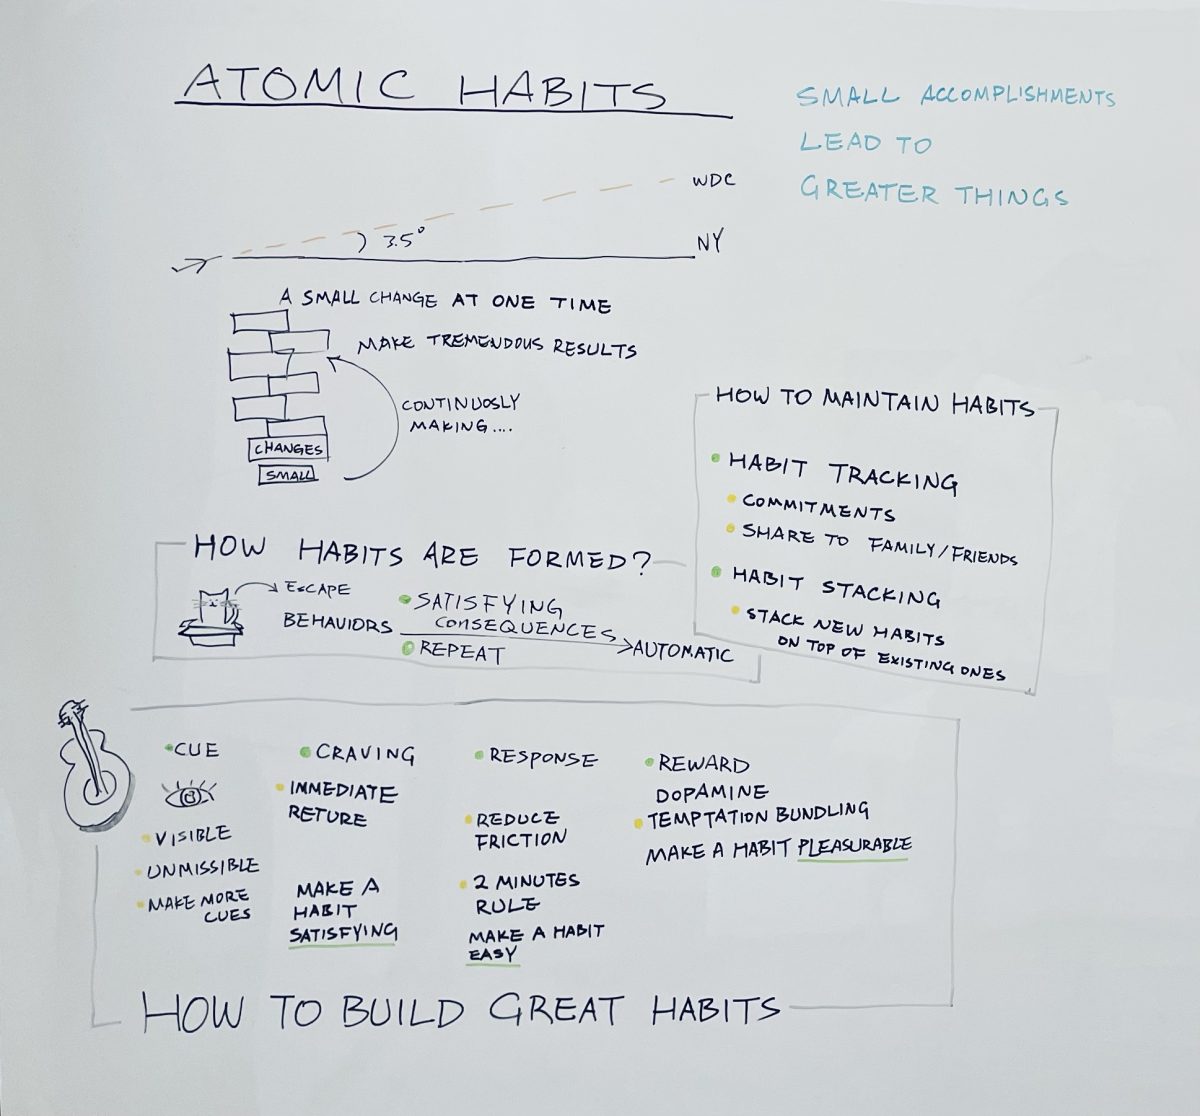 ATOMIC HABITS
SMALL ACCOMPLISHMENTS
LEAD TO
GREATER THINGS
WDC
3.5°
NY
A SMALL CHANGE AT ONE TIME
MAKE TREMENDOUS RESULTS
CONTINUOSLY
MAKING....
CHANGES
SMALL
HOW TO MAINTAIN HABITS
HABIT TRACKING
COMMITMENTS
SHARE TO FAMILY/FRIENDS
HABIT STACKING
STACK NEW HABITS
ON TOP OF EXISTING ONES
HOW HABITS ARE FORMED?
ESCAPE
BEHAVIORS
SATISFYING
CONSEQUENCES
REPEAT
AUTOMATIC
CUE
VISIBLE
UNMISSIBLE
MAKE MORE
CUES
CRAVING
IMMEDIATE
RETURE
MAKE A
HABIT
SATISFYING
RESPONSE
REDUCE
FRICTION
2 MINUTES
RULE
MAKE A HABIT
EASY
REWARD
DOPAMINE
TEMPTATION BUNDLING
MAKE A HABIT PLEASURABLE
HOW TO BUILD GREAT HABITS